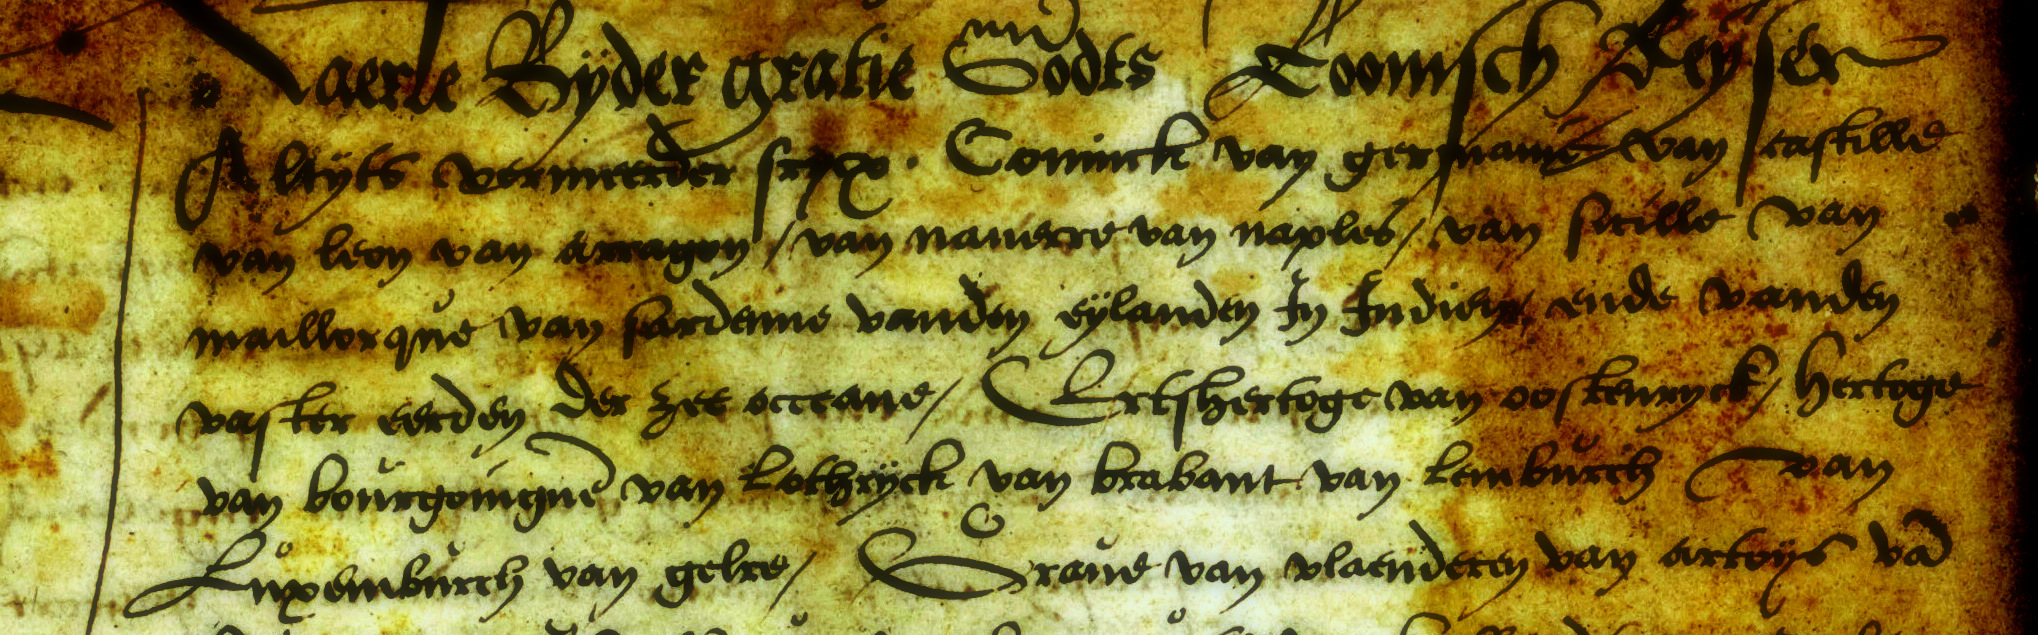 Kaerle Byder gratie Godts Roomsch Keyser
Altyts vermeerder sryx. Coninck van germanie / van castille
van leon van arragon / van naverre van naples / van secille van
maillorque van sardenne vanden eylanden In Indien / ende vanden
vaster eerden der zee occeane / Ertshertoge van oostenryck / hertoge
van bourgoingne van Lothryck van brabant van Lemburch van
Luxemburch van gelre / Grave van vlaenderen van artoys va